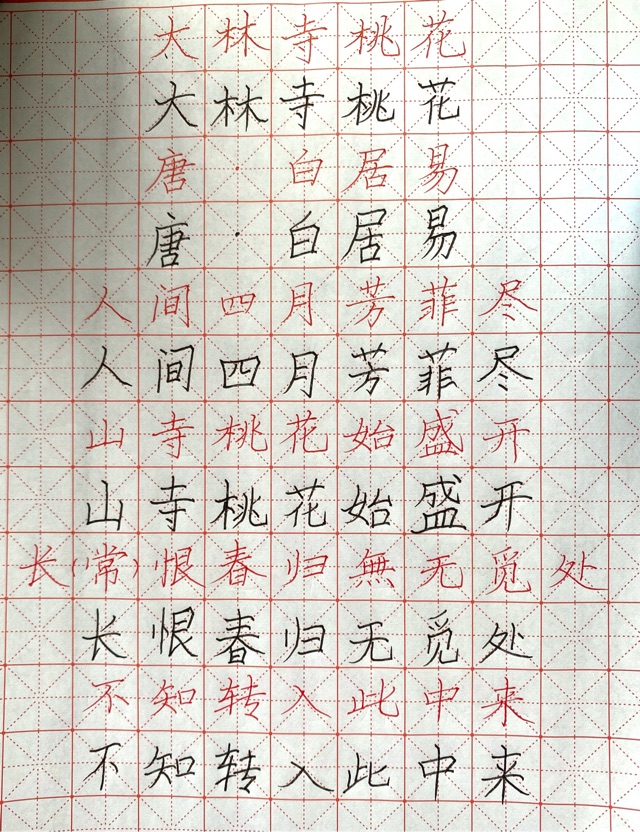 大林寺桃花
大林寺桃花
唐·白居易
唐·白居易
人间四月芳菲尽
人间四月芳菲尽
山寺桃花始盛开
山寺桃花始盛开
长(常)恨春归無无觅处
长恨春归无觅处
不知转入此中来
不知转入此中来